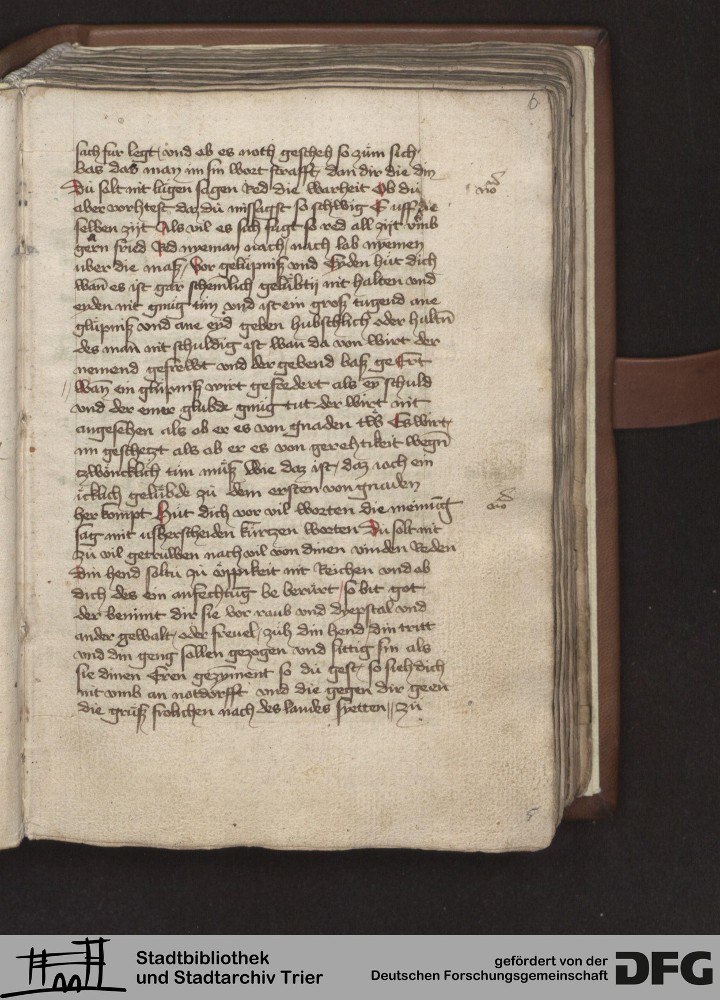 6
sach fur legt / vnd ob es noth gescheh so züm sich
bas das man im sin wort strafft, dan dir die din
Du solt nit lugen sagen Red die warheit Ob du
aber vorhtest, da du missagst so schwig E uff die
selben zijt Als vil es sich fugt so red all zijt vmb
gern fried Red nyeman nach, nach lob nyemen
uber die maß / Vor gelüpniß vnd Eyden hüt dich
wañ es ist gar schemlich gelübtij nit halten vnd
eyden nit gnüg tün vnd ist ein groß tugend ane
glüpniß vnd ane eyd geben hubschlich oder haltñ
des man nit schuldig ist wañ da von wirt der
nemend gefrewt vnd der gebend baß ge Ert
wañ ein glüpniß wirt gefordert als ey schuld
vnd der einer glubde gnüg tut der wirt nit
angesehen als ob er es von gnaden tw Es wirt
im geschetzt als ob er es von gerehtikeit wegñ
tzwöncklich tün müß Wie daz ist / daz ioch ein
icklich gelübde zü dem ersten von gnaden
her kompt Hüt dich vor vil worten die meinüg
sag mit vsherscheiden kürtzen worten Du solt nit
zü vil getruwen nach vil von dinen vinden Reden
Din hend soltu zü üppikeit nit Reichen vnd ob
dich des ein anfechtüg be berürt / so bit got
der benimt dir sie vor raub vnd dyepstal vnd
ander gewalt, oder freuel / züh din hend / din tritt
vnd din geng sollen gezogen vnd sittig sin als
sie dinen Eren gezyment so du gest, so sieh dich
nit vmb an notdorfft vnd die gegen dir geen
die grüß frolichen nach des landes sietten // zü
Stadtbibliothek
und Stadtarchiv Trier
gefördert von der
Deutschen Forschungsgemeinschaft
DFG